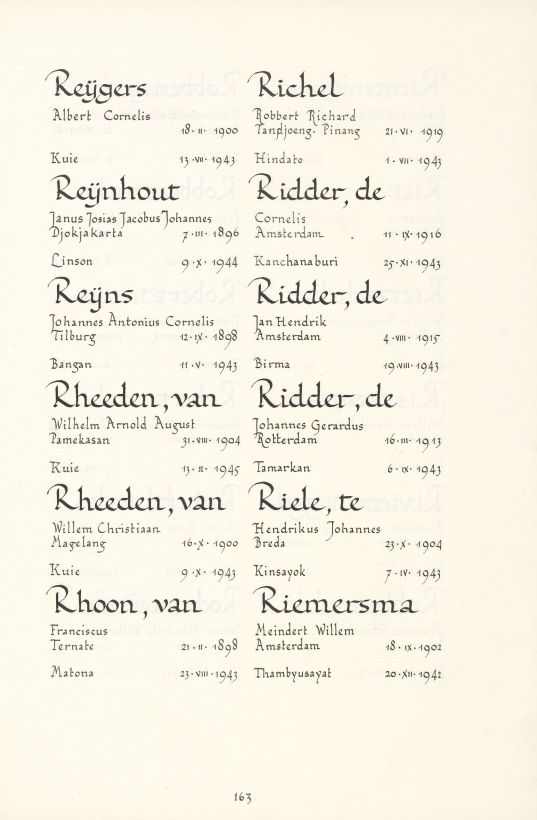 Reÿgers
Albert Cornelis
18·II· 1900
Kuie 13·VII·1943
Reÿnhout
Janus Josias Jacobus Johannes
Djokjakarta 7·III·1896
Linson 9·X·1944
Reÿns
Johannes Antonius Cornelis
Tilburg 12·IX·1898
Bangan 11·V· 1943
Rheeden, van
Wilhelm Arnold August
Pamekasan 31·VIII·1904
Kuie 13·II·1945
Rheeden, van
Willem Christiaan
Magelang 16·X·1900
Kuie 9·X·1943
Rhoon, van
Franciscus
Ternate 21·II·1898
Matona 23·VIII·1943
Richel
Robbert Richard
Tandjoeng-Pinang 21·VI·1919
Hindato 1·VII·1943
Ridder, de
Cornelis
Amsterdam 11·IX·1916
Kanchanaburi 25·XI·1943
Ridder, de
Jan Hendrik
Amsterdam 4·VIII·1915
Birma 19·VIII·1943
Ridder, de
Johannes Gerardus
Rotterdam 16·III·1913
Tamarkan 6·IX·1943
Riele, te
Hendrikus Johannes
Breda 23·X·1904
Kinsayok 7·IV·1943
Riemersma
Meindert Willem
Amsterdam 18·IX·1902
Thambyusayat 20·XII·1942
163